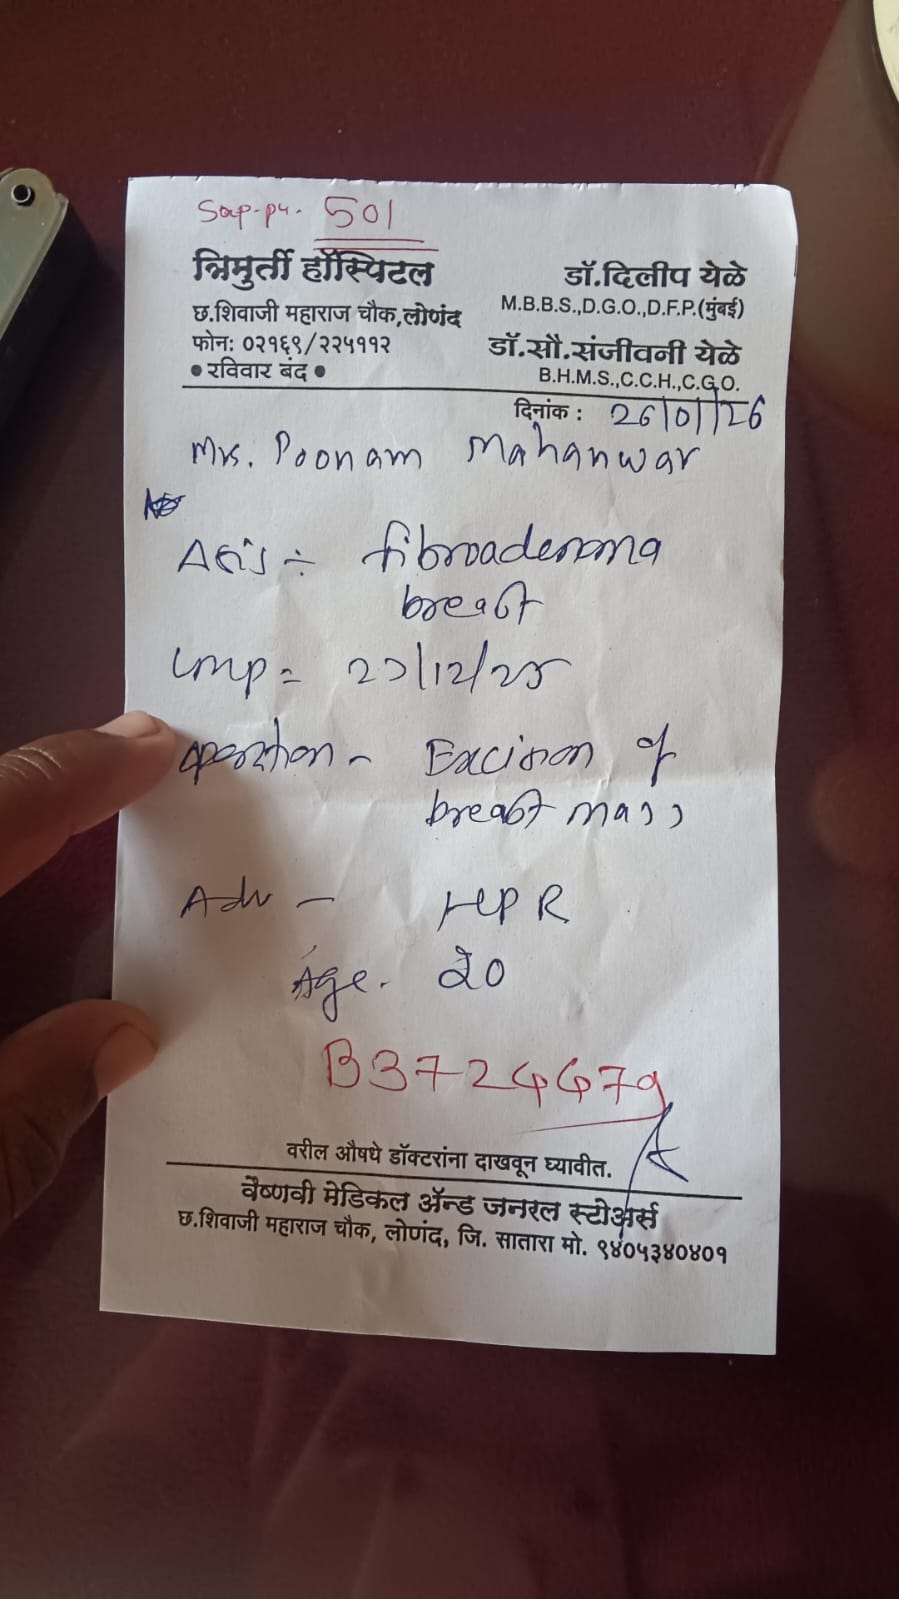 501
त्रिमुर्ती हॉस्पिटल
डॉ.दिलीप येळे
छ.शिवाजी महाराज चौक,लोणंद
M.B.B.S.,D.G.O.,D.F.P.(मुंबई)
फोनः ०२१६९/२२५११२
डॉ.सौ.संजीवनी येळे
● रविवार बंद ●
B.H.M.S.,C.C.H.,C.G.O.
दिनांक : 26/01/26
Mrs. Poonam Mahanwar
fibroadenoma
breast
LMP = /12/25
operation - Excision of
breast mass
Adv - HPR
Age. 20
B3724479
वरील औषधे डॉक्टरांना दाखवून घ्यावीत.
वैष्णवी मेडिकल ॲन्ड जनरल स्टोअर्स
छ.शिवाजी महाराज चौक, लोणंद, जि. सातारा मो. ९४०५३४०४०१